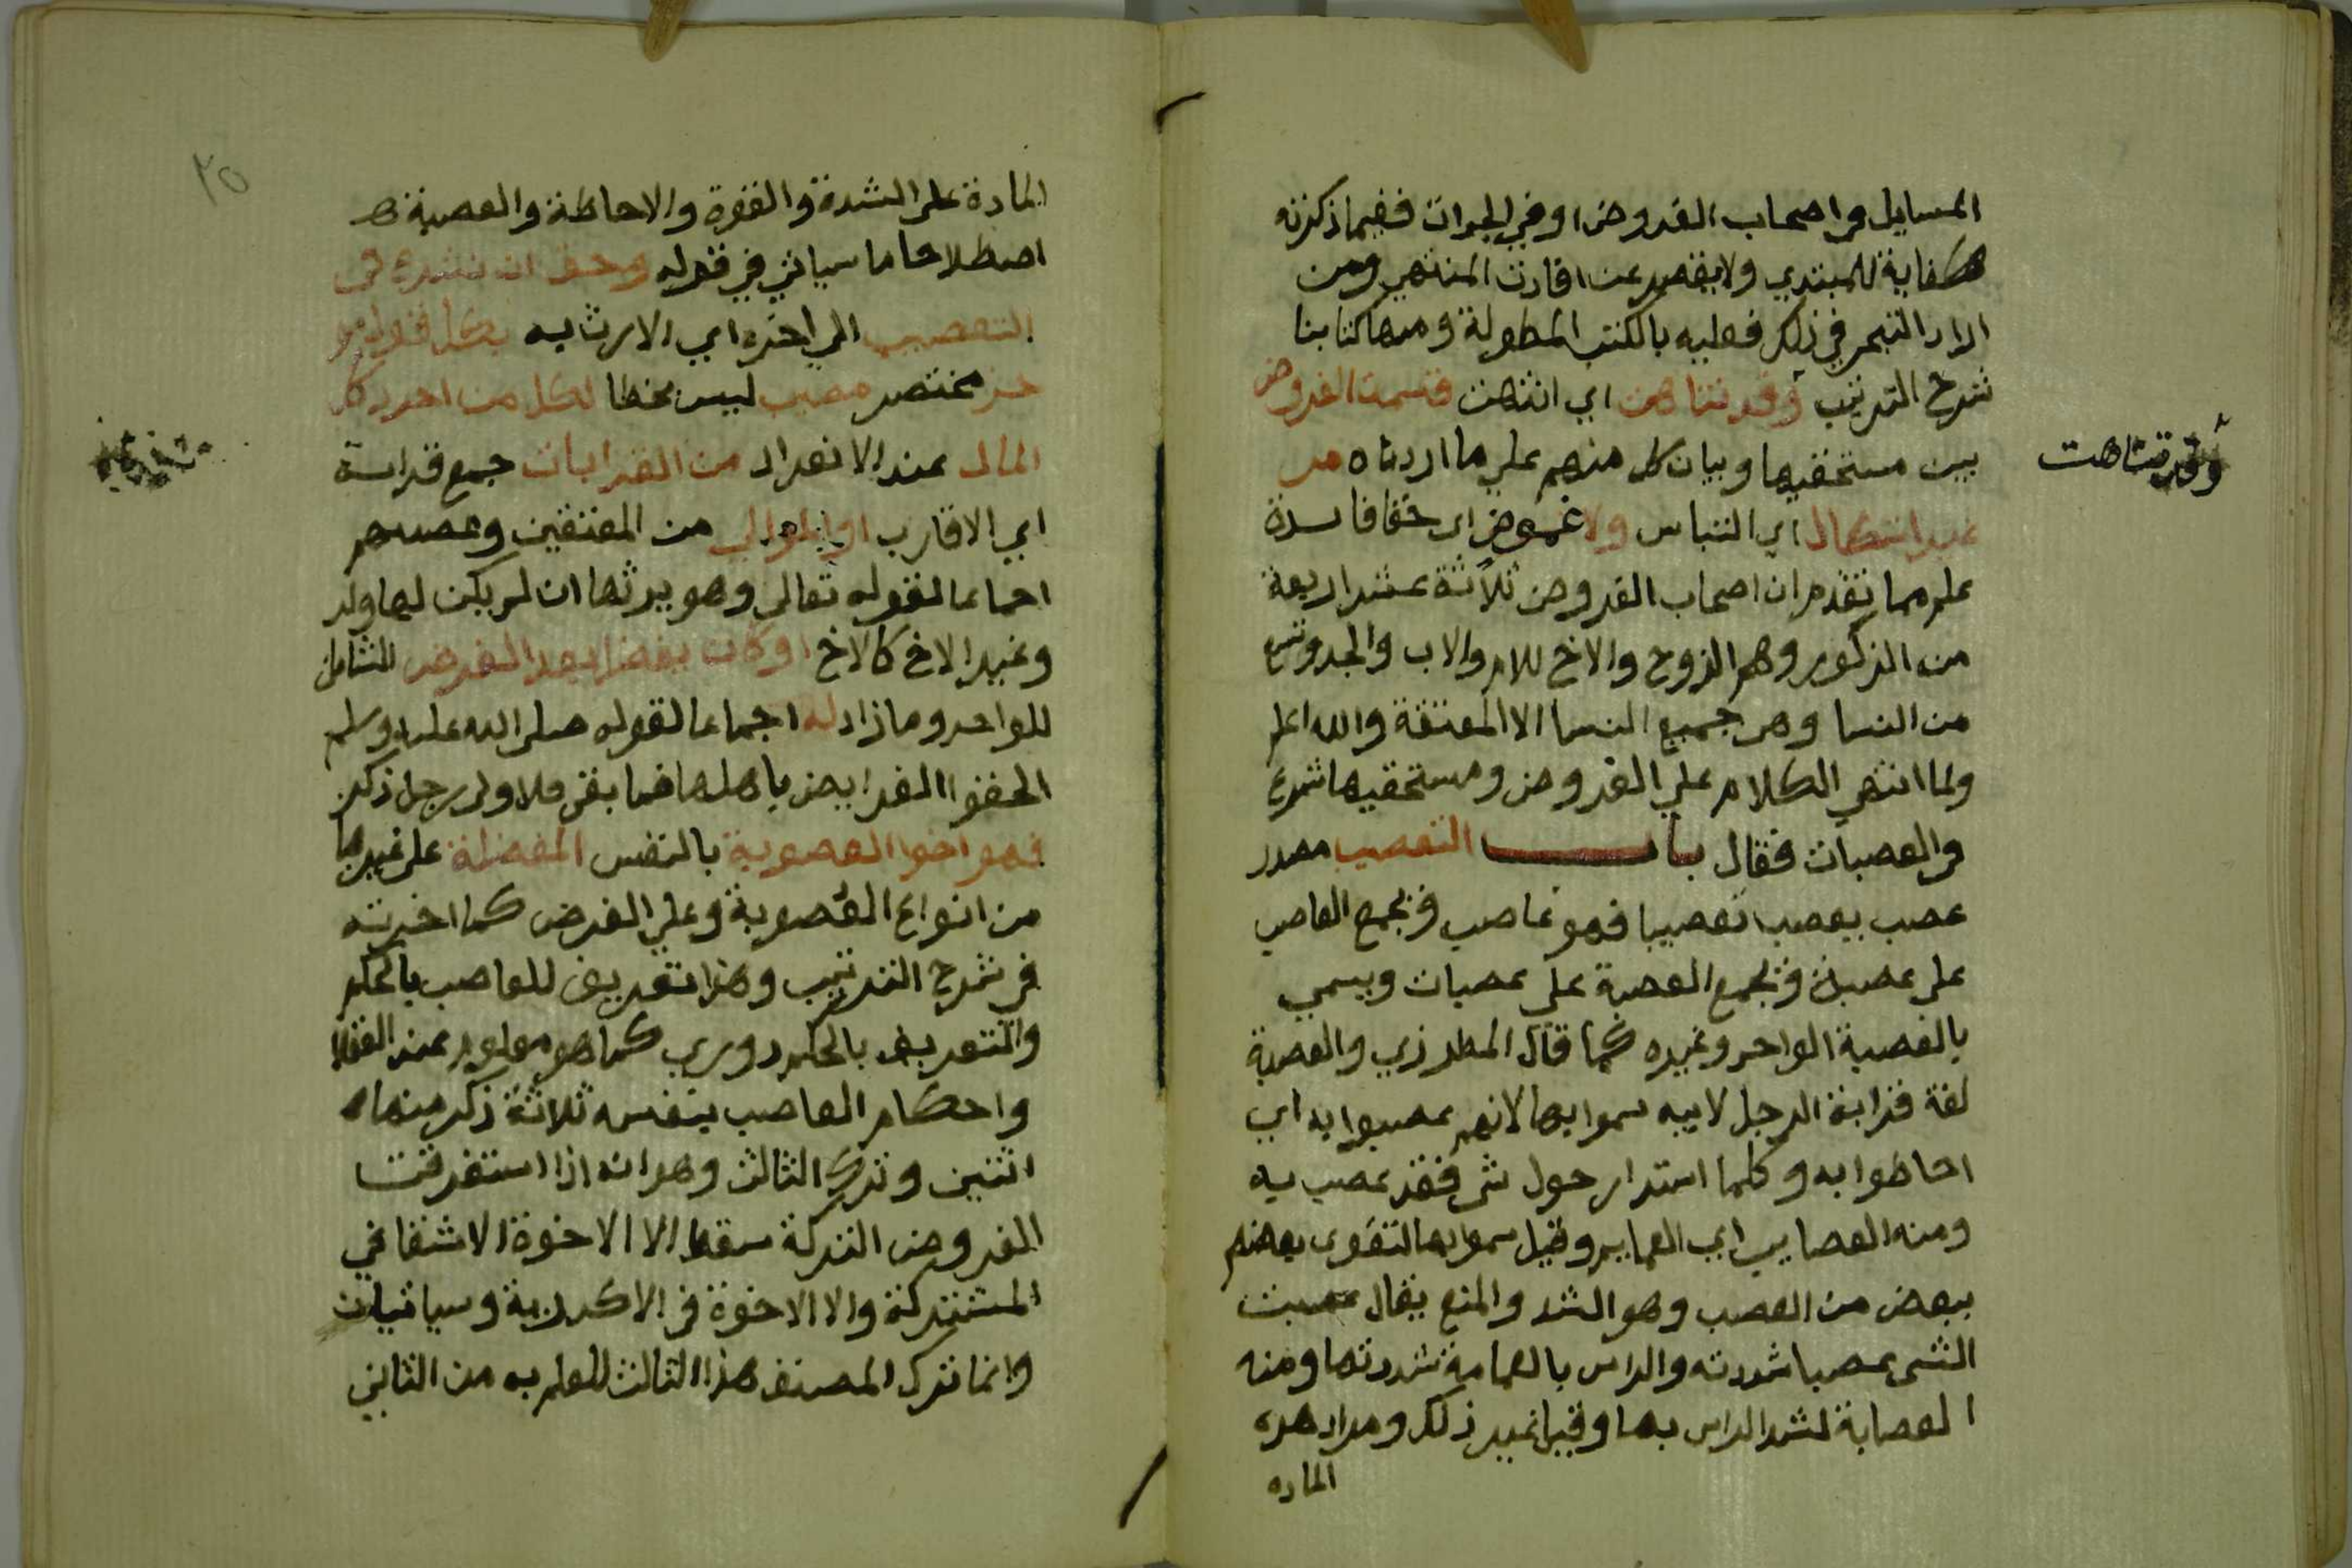 المسايل في اصحاب الفروض او في الجدات ففيما ذكرته
كفاية للمبتدي ولا يقصر عن افادت المنتهي ومن
اراد التبحر في ذلك فعليه بالكتب المطولة ومنها كتابنا
شرح الترتيب وقد تناهت اي انتهت قسمت الفروض
وقد تناهت
بين مستحقيها وبيان كل منهم علي ما اردناه من
غير اشكال اي التباس ولا غموض اي خفا فايدة
علم مما تقدم ان اصحاب الفروض ثلاثة عشر اربعة
من الذكور وهم الزوج والاخ للام والاب والجد وتسع
من النسا وهي جميع النسا الا المعتقة والله اعلم
ولما انتهي الكلام علي الفروض ومستحقيها شرع
في العصبات فقال باب التعصيب مصدر
عصب يعصب تعصيبا فهو عاصب ويجمع العاصب
علي عصبة وتجمع العصبة علي عصبات ويسمي
بالعصبة الواحد وغيره كما قال المطرزي والعصبة
لغة قرابة الرجل لابيه سموا بها لانهم عصبوا به اي
احاطوا به وكلما استدار حول شي فقد عصب به
ومنه العصايب اي العمايم وقيل سموا بها لتقوي بعضهم
ببعض من العصب وهو الشد والمنع يقال عصبت
الشي عصبا شددته والراس بالعمامة شددتها ومنه
العصابة لشد الراس بها وقيل غير ذلك ومدار هده
الماده
٢٥
المادة علي الشدة والقوة والاحاطة والعصبة
اصطلاحا ما سياتي في قوله وحق ان نشرع في
التعصيب الي اخره اي الارث به بكل قول
مختصر مصيب ليس بخطا لكل من احرز كل
المال عند الانفراد من القرابات جمع قرابة
اي الاقارب او الموالي من المعتقين وعصبتهم
اجماعا لقوله تعالي وهو يرثها ان لم يكن لها ولد
وغير الاخ كالاخ او كان يفضل بعد الفرض الشامل
للواحد وما زاد له اجماعا لقوله صلي الله عليه وسلم
الحقوا الفرايض باهلها فما بقي فلاولي رجل ذكر
فهو اخوا العصوبة بالنفس المفضلة علي غيرها
من انواع العصوبة وعلي الفرض كما اخترته
في شرح الترتيب وهذا تعريف للعاصب بالحكم
والتعريف بالحكم دوري كما هو معلوم عند العقلا
واحكام العاصب بنفسه ثلاثة ذكر منها
اثنين وترك الثالث وهو انه اذا استغرقت
الفروض التركة سقط الا الاخوة الاشقا في
المشتركة والا الاخوة في الاكدرية وسياتيان
وانما ترك المصنف هذا الثالث للعلم به من الثاني